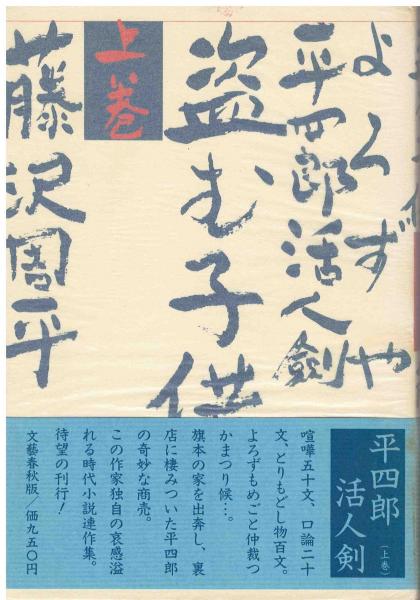 よろずや
平四郎活人剣
盗む子供
上巻
藤沢周平
平四郎
活人剣
(上巻)
喧嘩五十文、口論二十
文、とりもどし物百文。
よろずもめごと仲裁つ
かまつり候…。
旗本の家を出奔し、裏
店に棲みついた平四郎
の奇妙な商売。
この作家独自の哀感溢
れる時代小説連作集。
待望の刊行!
文藝春秋版/価九五〇円